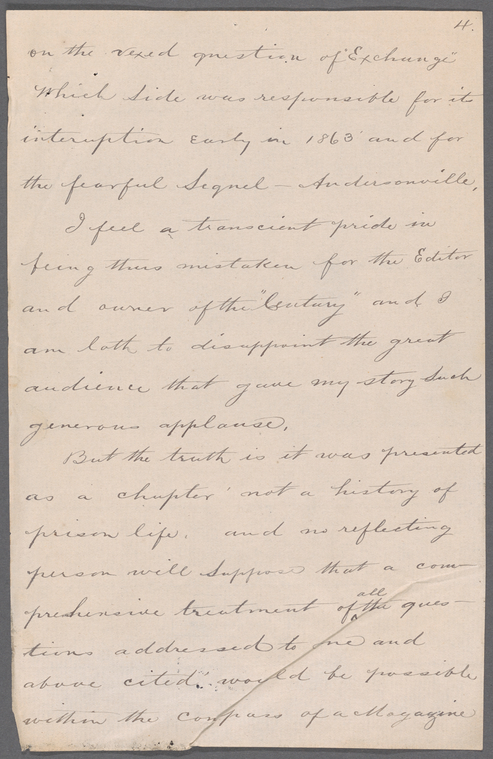 4.
on the vexed question of "Exchange"
Which Side was responsible for its
interuption Early in 1863 and for
the fearful Sequel – Andersonville,
I feel a transcient pride in
being thus mistaken for the Editor
and owner of the "Century" and I
am loth to disappoint the great
audience that gave my story Such
generous applause.
But the truth is it was presented
as a chapter not a history of
prison life. and no reflecting
person will Suppose that a com-
all
prehensive treatment of the ques-
tions addressed to me and
above cited would be possible
within the compass of a Magazine